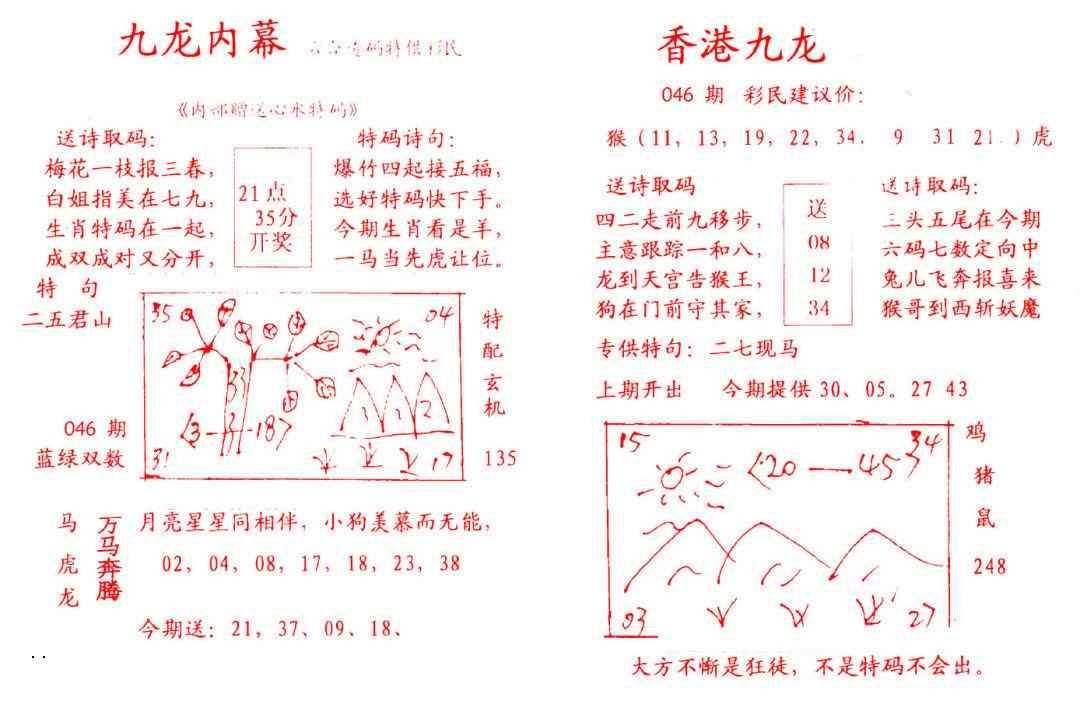 九龙内幕
码特供彩民
《内部赠送心水特码》
送诗取码：
梅花一枝报三春，
白姐指美在七九，
生肖特码在一起，
成双成对又分开，
21点
35分
开奖
特码诗句：
爆竹四起接五福，
选好特码快下手。
今期生肖看是羊，
一马当先虎让位。
特 句
二五君山
046 期
蓝绿双数
35
04
33
3
1
2
31
17
特配玄机
135
马虎龙
万马奔腾
月亮星星同相伴，小狗羡慕而无能，
02，04，08，17，18，23，38
今期送：21，37、09、18、
香港九龙
046 期 彩民建议价：
猴（11，13，19，22，34. 9 31 21.）虎
送诗取码
四二走前九移步，
主意跟踪一和八，
龙到天宫告猴王，
狗在门前守其家，
送
08
12
34
送诗取码：
三头五尾在今期
六码七数定向中
兔儿飞奔报喜来
猴哥到西斩妖魔
专供特句：二七现马
上期开出 今期提供 30、05。27 43
15
34
20—45
03
27
鸡
猪
鼠
248
大方不惭是狂徒，不是特码不会出。